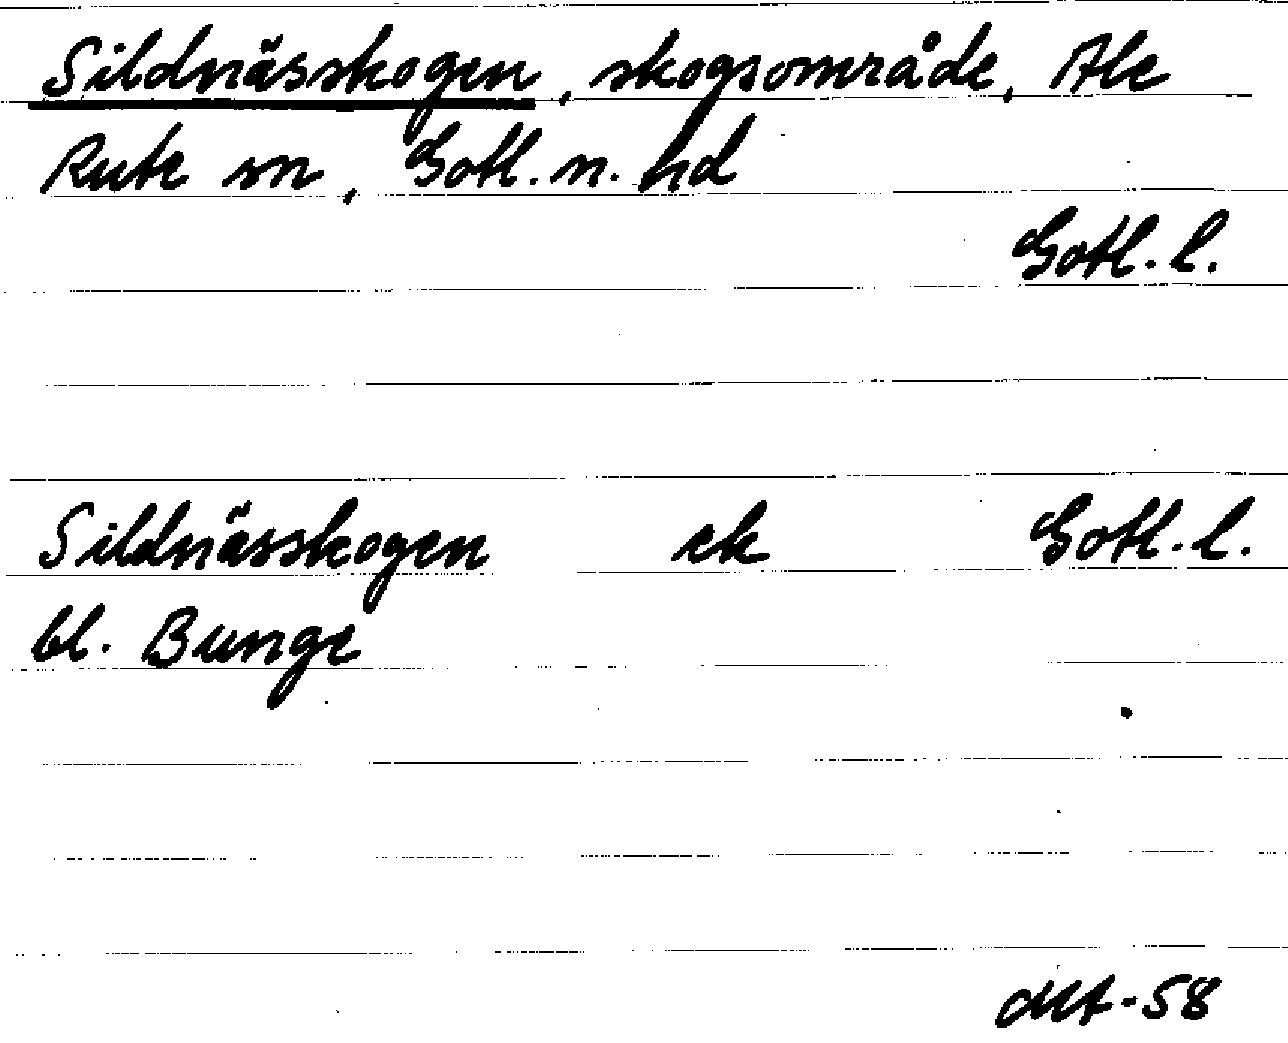 Sildnässkogen, skogsområde, Ale
Rute sn, Gotl. n. hd
Gotl. l.
Sildnässkogen ek Gotl. l.
bl. Bunge
-58